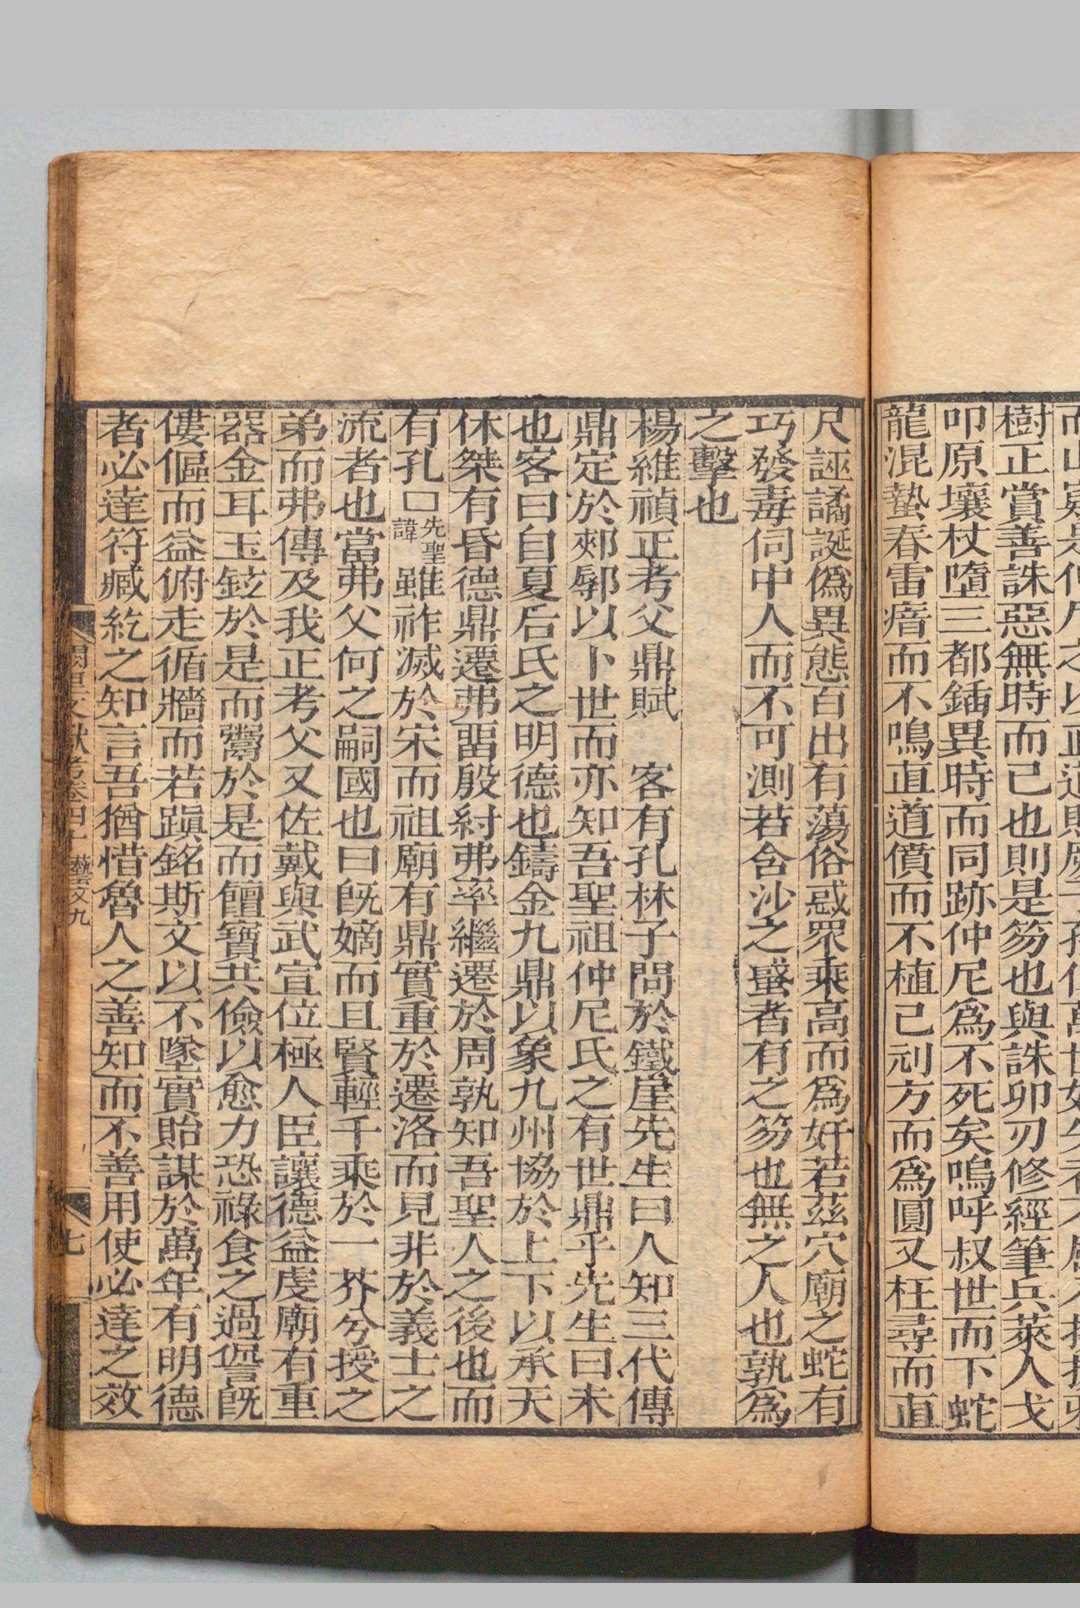 樹正賞善誅惡無時而已也則是笏也與誅卯刃修經筆兵萊人戈
叩原壤杖墮三都鍤異時而同跡仲尼爲不死矣嗚呼叔世而下蛇
龍混蟄春雷瘖而不鳴直道僨而不植已刓方而爲圓又枉尋而直
尺誣譎誕僞異態百出有蕩俗惑眾乘高而爲奸若茲穴廟之蛇有
巧發毒伺中人而不可測若含沙之蜮者有之笏也無之人也孰爲
之擊也
楊維禎正考父鼎賦 客有孔林子問於鐵崖先生曰人知三代傳
鼎定於郟鄏郭以卜世而亦知吾聖祖仲尼氏之有世鼎乎先生曰未
也客曰自夏后氏之明德也鑄金九鼎以象九州協於上下以承天
休桀有昏德鼎遷弗畱殷紂弗率繼遷於周孰知吾聖人之後也而
有孔口先聖諱雖祚滅於宋而祖廟有鼎實重於遷洛而見非於義士之
流者也當弗父何之嗣國也曰旣嫡而且賢輕千乘於一芥兮授之
弟而弗傳及我正考父又佐戴與武宣位極人臣讓德益虔廟有重
器金耳玉鉉於是而鬻於是而饘寶共儉以愈力恐祿食之過眚旣
僂傴而益俯走循牆而若蹎銘斯文以不墜實貽謀於萬年有明德
者必達符臧紇之知言吾猶惜魯人之善知而不善用使必達之效
闕里文獻考卷四十 藝文九
七